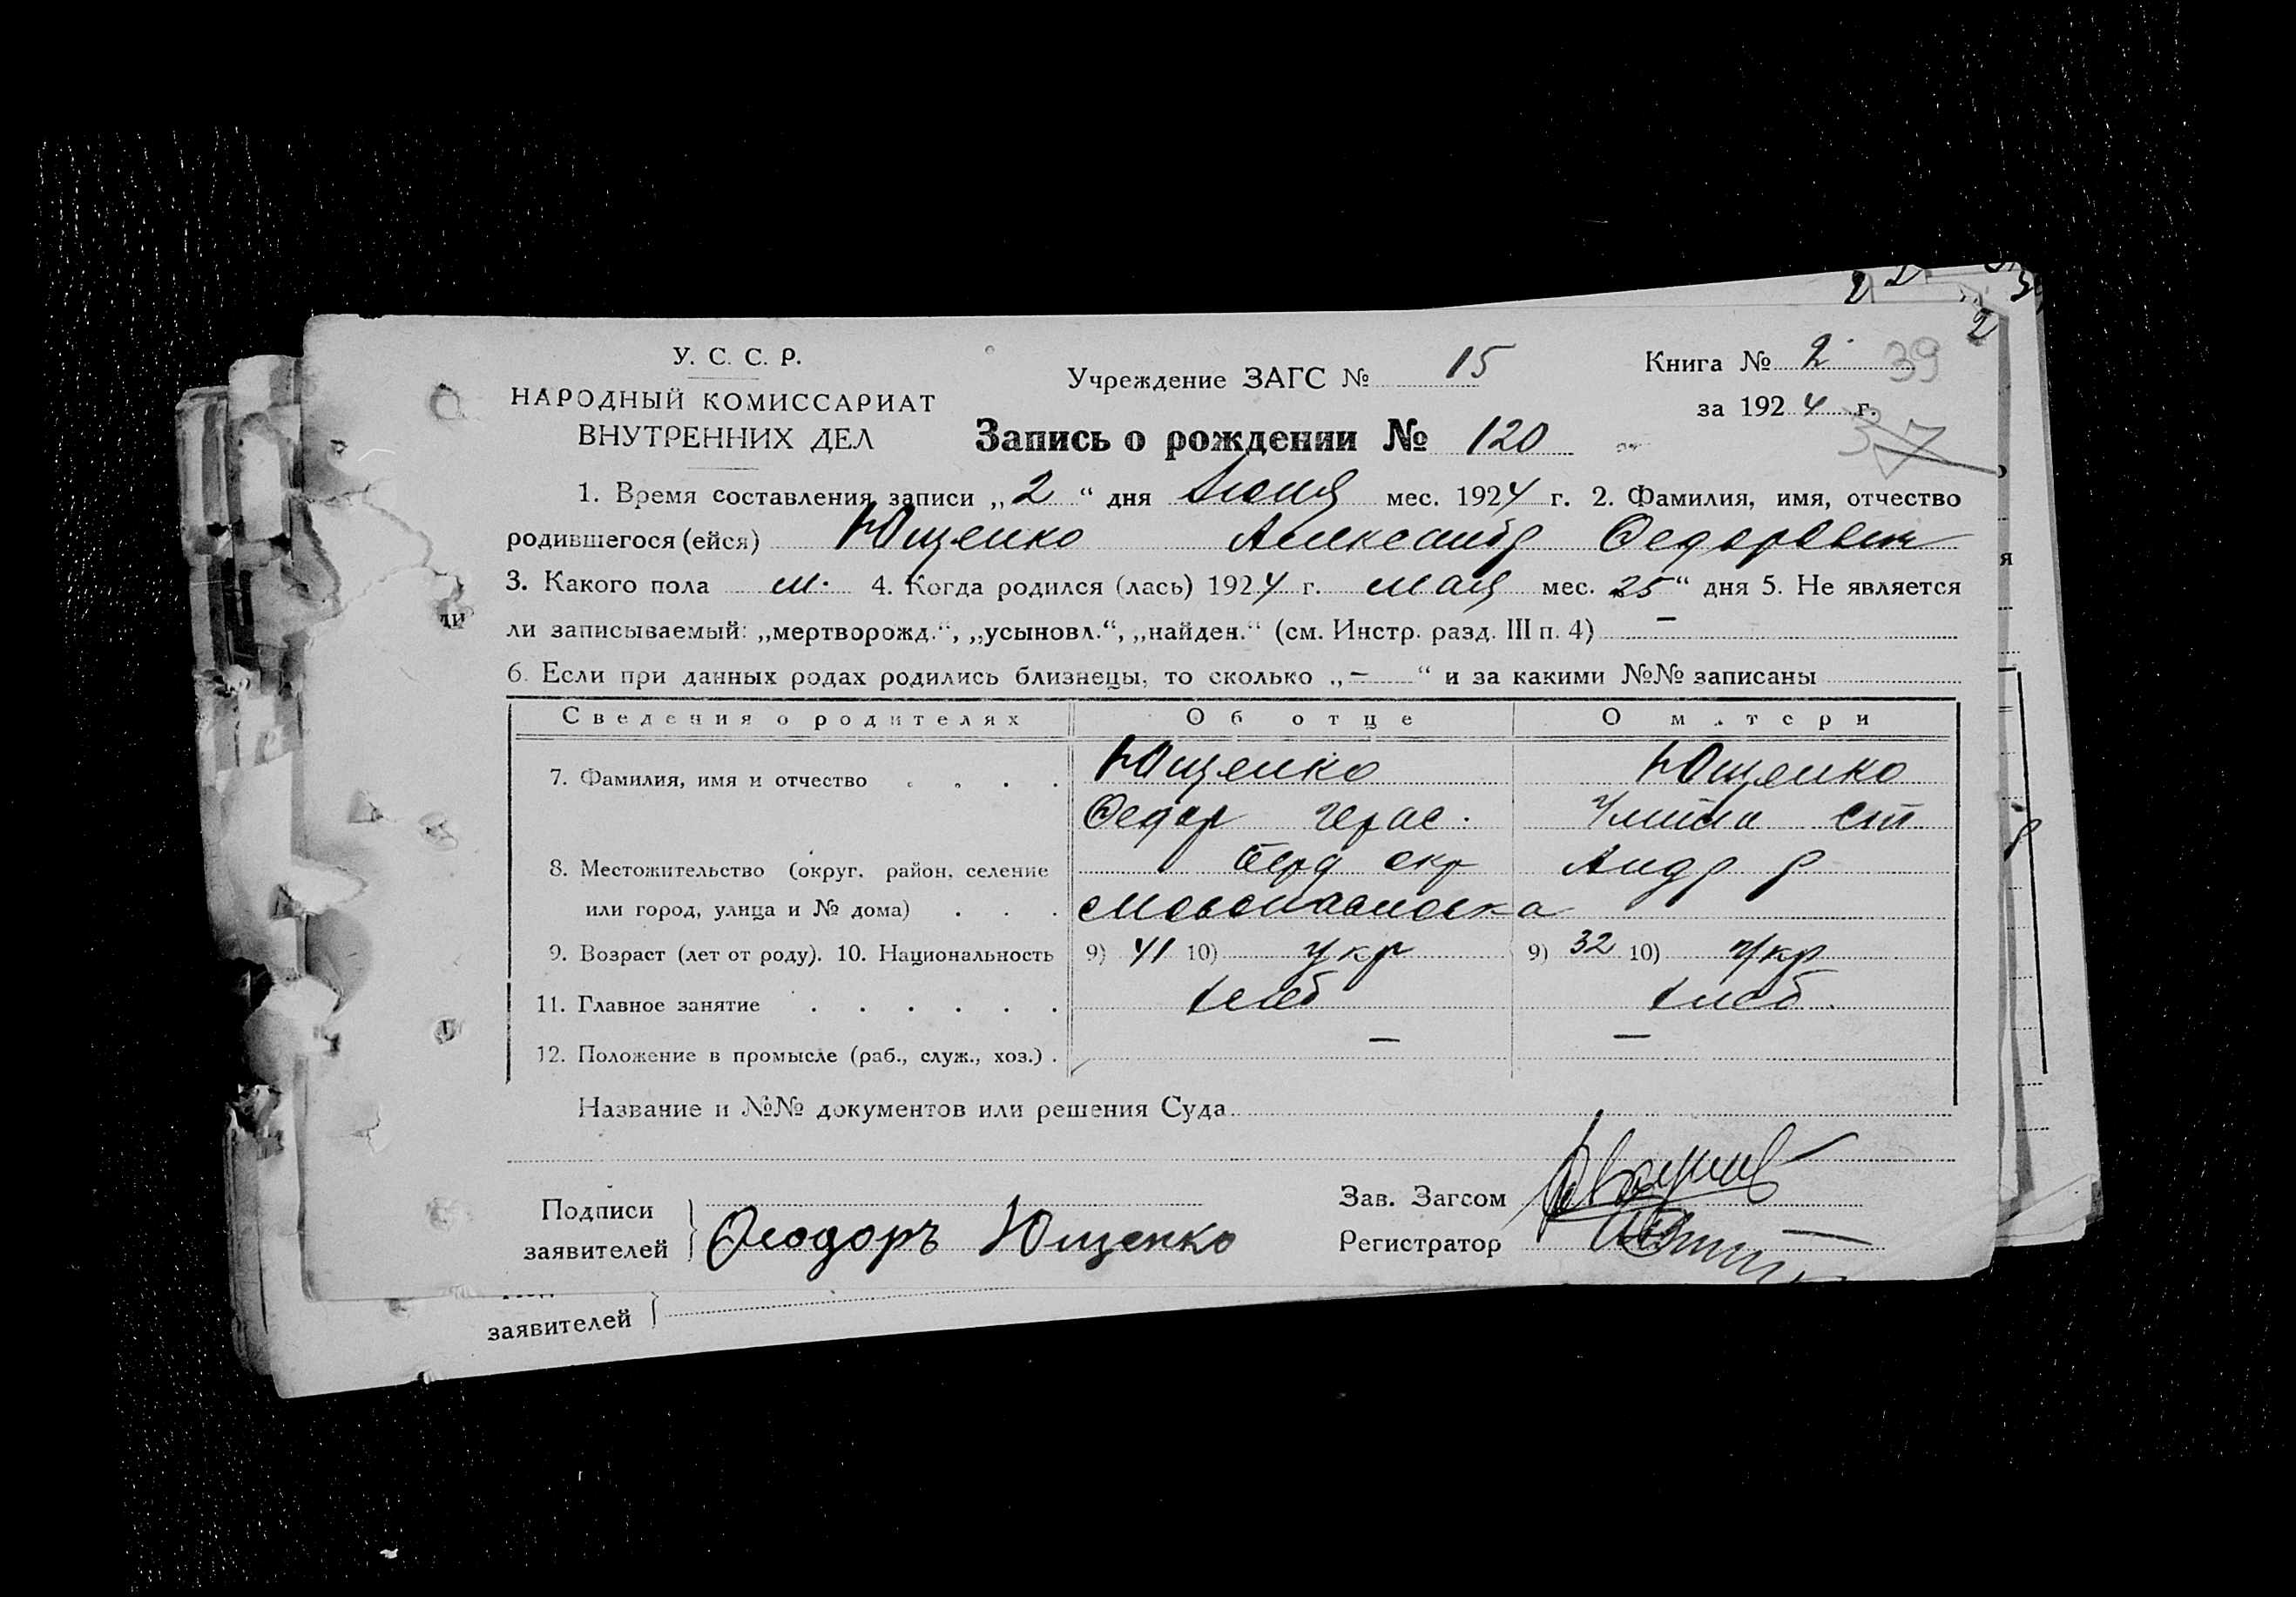 У. С. С. Р.
НАРОДНЫЙ КОМИССАРИАТ
ВНУТРЕННИХ ДЕЛ
Учреждение ЗАГС № 15
Книга № 2 39
за 1924 г.
37
Запись о рождении № 120
1. Время составления записи „2“ дня Июня мес. 1924 г. 2. Фамилия, имя, отчество
родившегося (ейся) Ющенко Александр Федорович
3. Какого пола м. 4. Когда родился (лась) 1924 г. мая мес. 25“ дня 5. Не является
ли записываемый: „мертворожд.“, „усыновл.“, „найден.“ (см. Инстр. разд. III п. 4) —
6. Если при данных родах родились близнецы, то сколько „—“ и за какими №№ записаны
Сведения о родителях Об отце О матери
7. Фамилия, имя и отчество . . . . Ющенко Ющенко
Федор Герас. Ст
8. Местожительство (округ, район, селение Берд окр Андр р
или город, улица и № дома) . . .
9. Возраст (лет от роду). 10. Национальность 9) 41 10) Укр 9) 32 10) Укр
11. Главное занятие . . . . . . хлеб хлеб.
12. Положение в промысле (раб., служ., хоз.) . — —
Название и №№ документов или решения Суда
Подписи
заявителей Феодоръ Ющенко
Зав. Загсом
Регистратор
заявителей